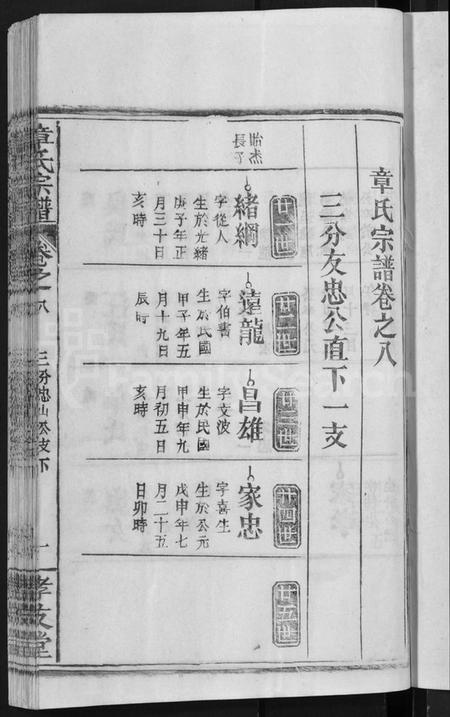 章氏宗譜卷之八
三分友忠公直下一支
廿一世
貽杰
長子
緒綱
字從人
生於光緒
庚子年正
月三十日
亥時
廿二世
遠龍
字伯書
生於民國
甲子年五
月十九日
辰時
廿三世
昌雄
字文波
生於民國
甲申年九
月初五日
亥時
廿四世
家忠
字喜生
生於公元
戊申年七
月二十五
日卯時
廿五世
章氏宗譜
卷之八
三分忠山公支下
一
孝友堂